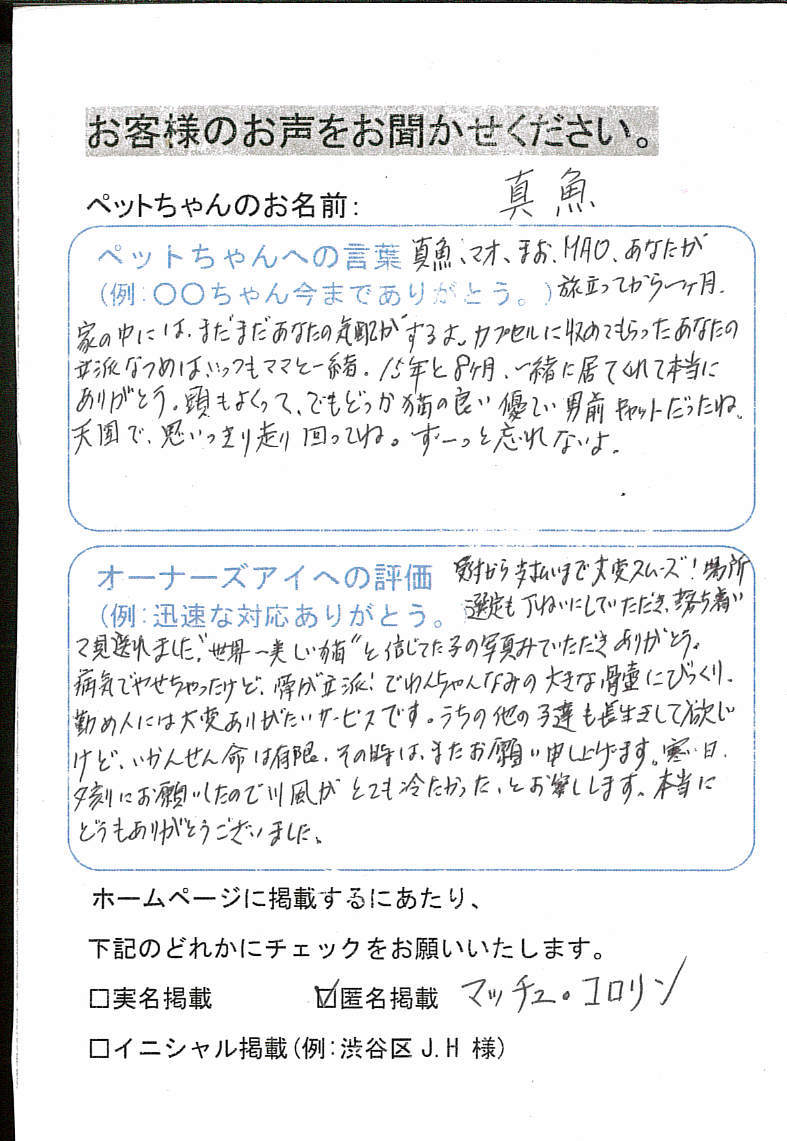 お客様のお声をお聞かせください。
ペットちゃんのお名前: 真魚
ペットちゃんへの言葉 真魚、マオ、まお、MAO、あなたが
(例:〇〇ちゃん今までありがとう。) 旅立ってから一ヶ月.
家の中には、まだまだあなたの気配がするよ。カプセルに収めてもらったあなたの
立派なつめはいつもママと一緒。15年と8ヶ月、一緒に居てくれて本当に
ありがとう。頭もよくって、でもどっか猫の良い優しい男前キャットだったね。
天国で、思いっきり走り回ってね。ずーっと忘れないよ.
オーナーズアイへの評価 受付から支払いまで大変スムーズ!場所
(例:迅速な対応ありがとう。 選定も丁ねいにしていただき、落ち着い
て見送れました。“世界一美しい猫”と信じてた子の写真みていただきありがとう。
病気でやせちゃったけど、骨が立派!でわんちゃんなみの大きな骨壷にびっくり.
勤め人には大変ありがたいサービスです。うちの他の子達も長生きして欲しい
けど、いかんせん命は有限.その時は、またお願い申し上げます。寒い日、
夕刻にお願いしたので川風がとても冷たかった、とお察しします。本当に
どうもありがとうございました。
ホームページに掲載するにあたり、
下記のどれかにチェックをお願いいたします。
□実名掲載 ☑匿名掲載 マッチュ。コロリン
□イニシャル掲載(例:渋谷区 J.H 様)